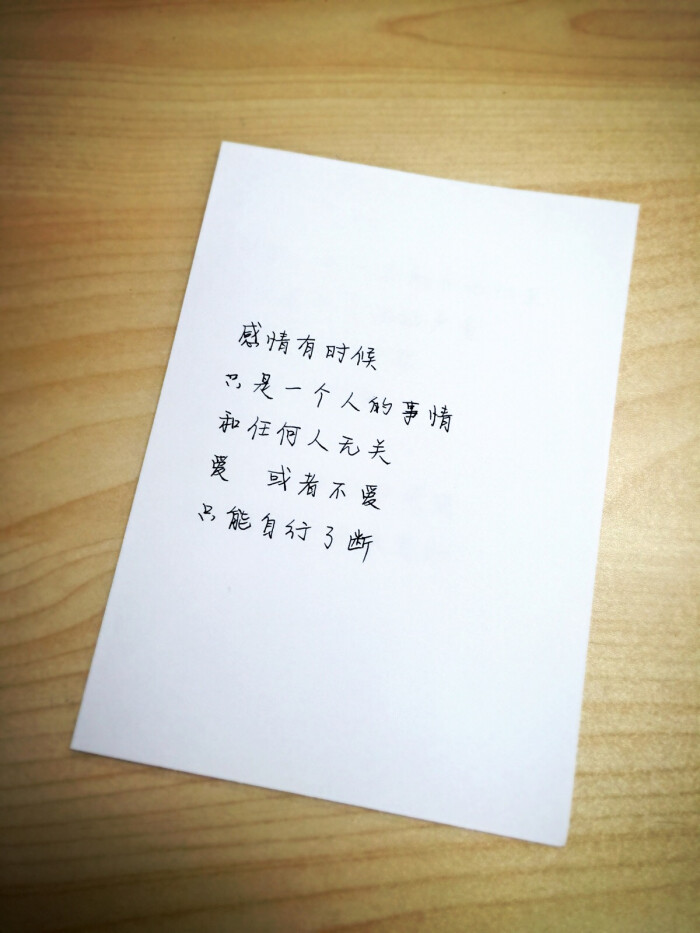 感情有时候
只是一个人的事情
和任何人无关
爱 或者不爱
只能自行了断